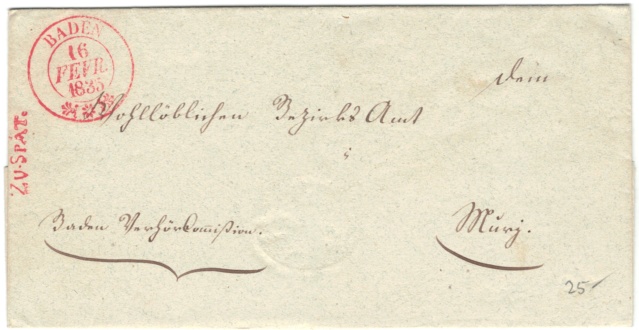 BADEN
16
FEVR.
1835
ZU-SPÄT.
Dem
Wohllöblichen Bezirks Amt
Baden Verhörcommißion.
Murj.
25